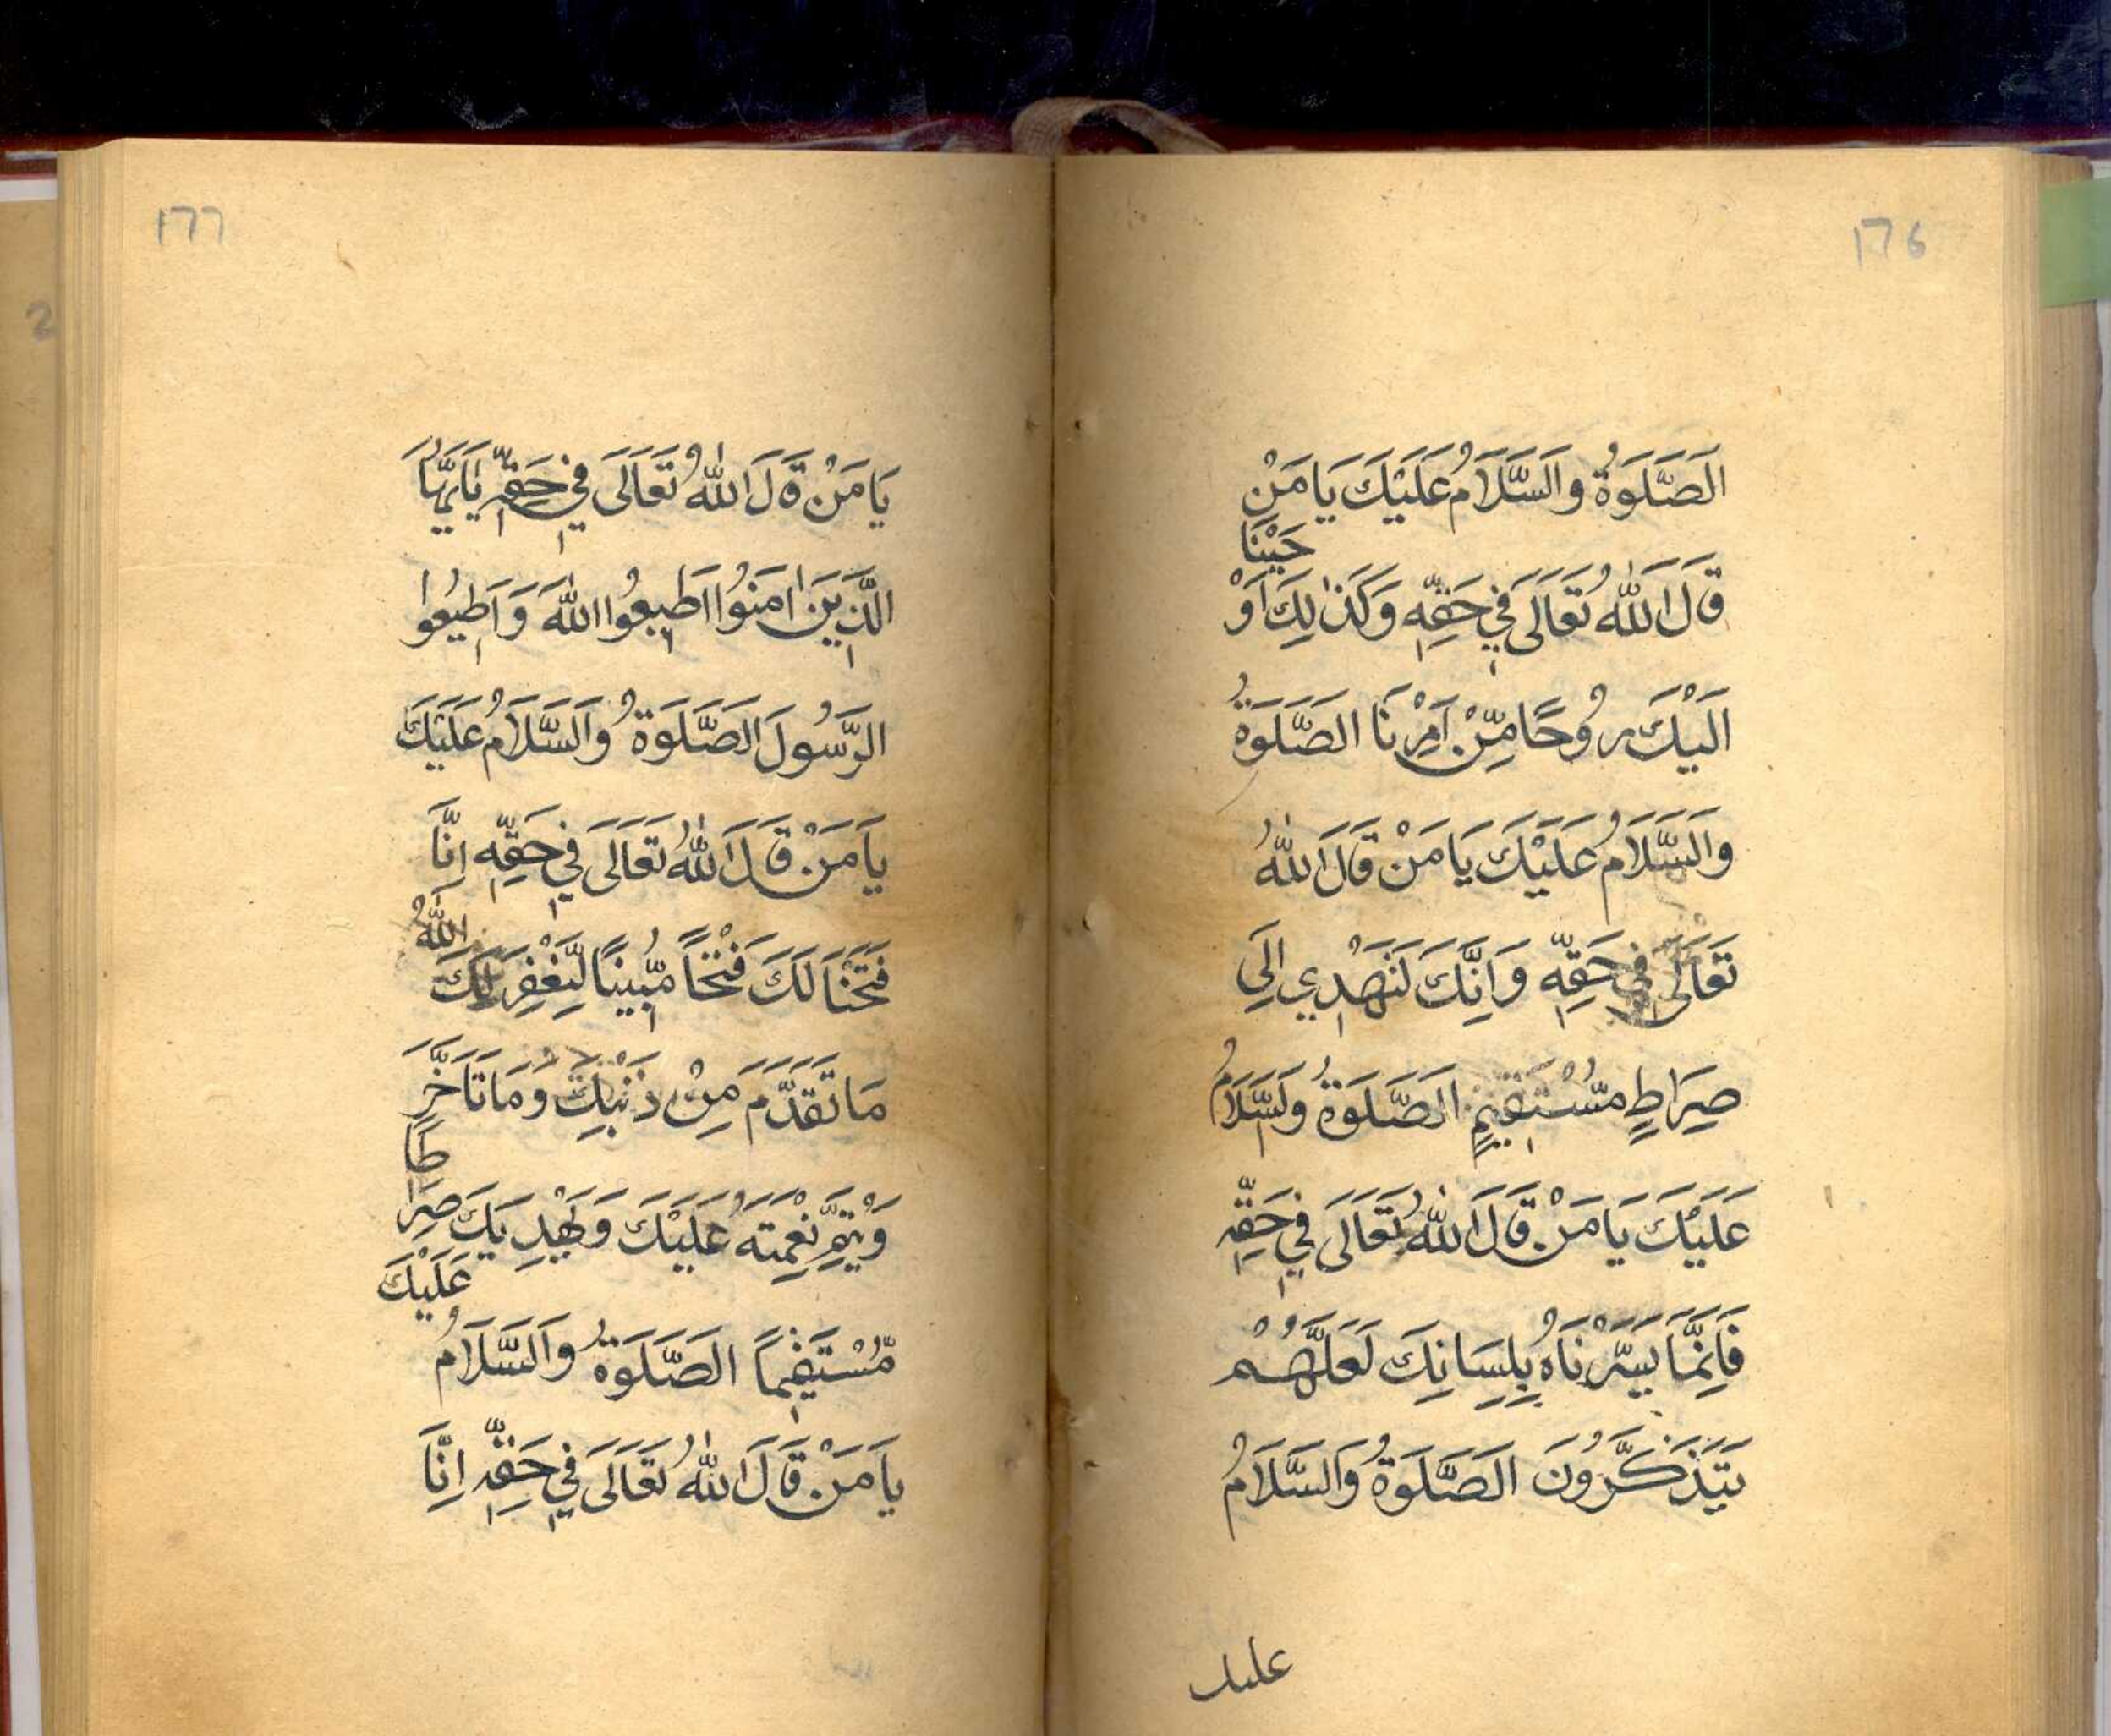 176
الَصَّلَوةُ وَالَسَّلَامُ عَلَيْكَ يَا مَنْ
قَالَ اللهُ تَعَالَى فِي حَقِّهِ وَكَذٰلِكَ اَوْحَيْنَا
الَيْكَ رُوحًا مِّنْ اَمِرْنَا الصَّلَوةُ
وَالَسَّلَامُ عَلَيْكَ يَا مَنْ قَالَ اللهُ
تَعَالَى فِي حَقِّهِ وَاِنَّكَ لَنَهْدِي اِلَى
صِرَاطٍ مُسْتَقِيمٍ الَصَّلَوةُ ولَسَّلَامُ
عَلَيْكَ يَا مَنْ قَالَ اللهُ تَعَالَى فِي حَقِّهِ
فَاِنَّمَا يَسَّرْنَاهُ بِلِسَانِكَ لَعَلَّهُمْ
يَتَذَكَّرُونَ الَصَّلَوةُ وَالسَّلَامُ
عليك
177
يَا مَنْ قَالَ اللهُ تَعَالَى فِي حَقِّهِ يٰاَيُّهَا
الَّذِينَ اٰمَنُوا اَطِيعُوا اللهَ وَاَطِيعُوا
الرَّسُولَ الصَّلَوةُ وَالَسَّلَامُ عَلَيْكَ
يَا مَنْ قَالَ اللهُ تَعَالَى فِي حَقِّهِ اِنَّا
فَتَحْنَا لَكَ فَتْحًا مُّبِينًا لِّيَغْفِرَ لَكَ اللهُ
مَا تَقَدَّمَ مِنْ ذَنْبِكَ وَمَا تَاَخَّرَ
وَيُتِمَّ نِعْمَتَهُ عَلَيْكَ وَيَهْدِيَكَ صِرَاطًا
مُّسْتَقِيمًا الصَّلَوةُ وَالَسَّلَامُ عَلَيْكَ
يَا مَنْ قَالَ اللهُ تَعَالَى فِي حَقِّهِ اِنَّا